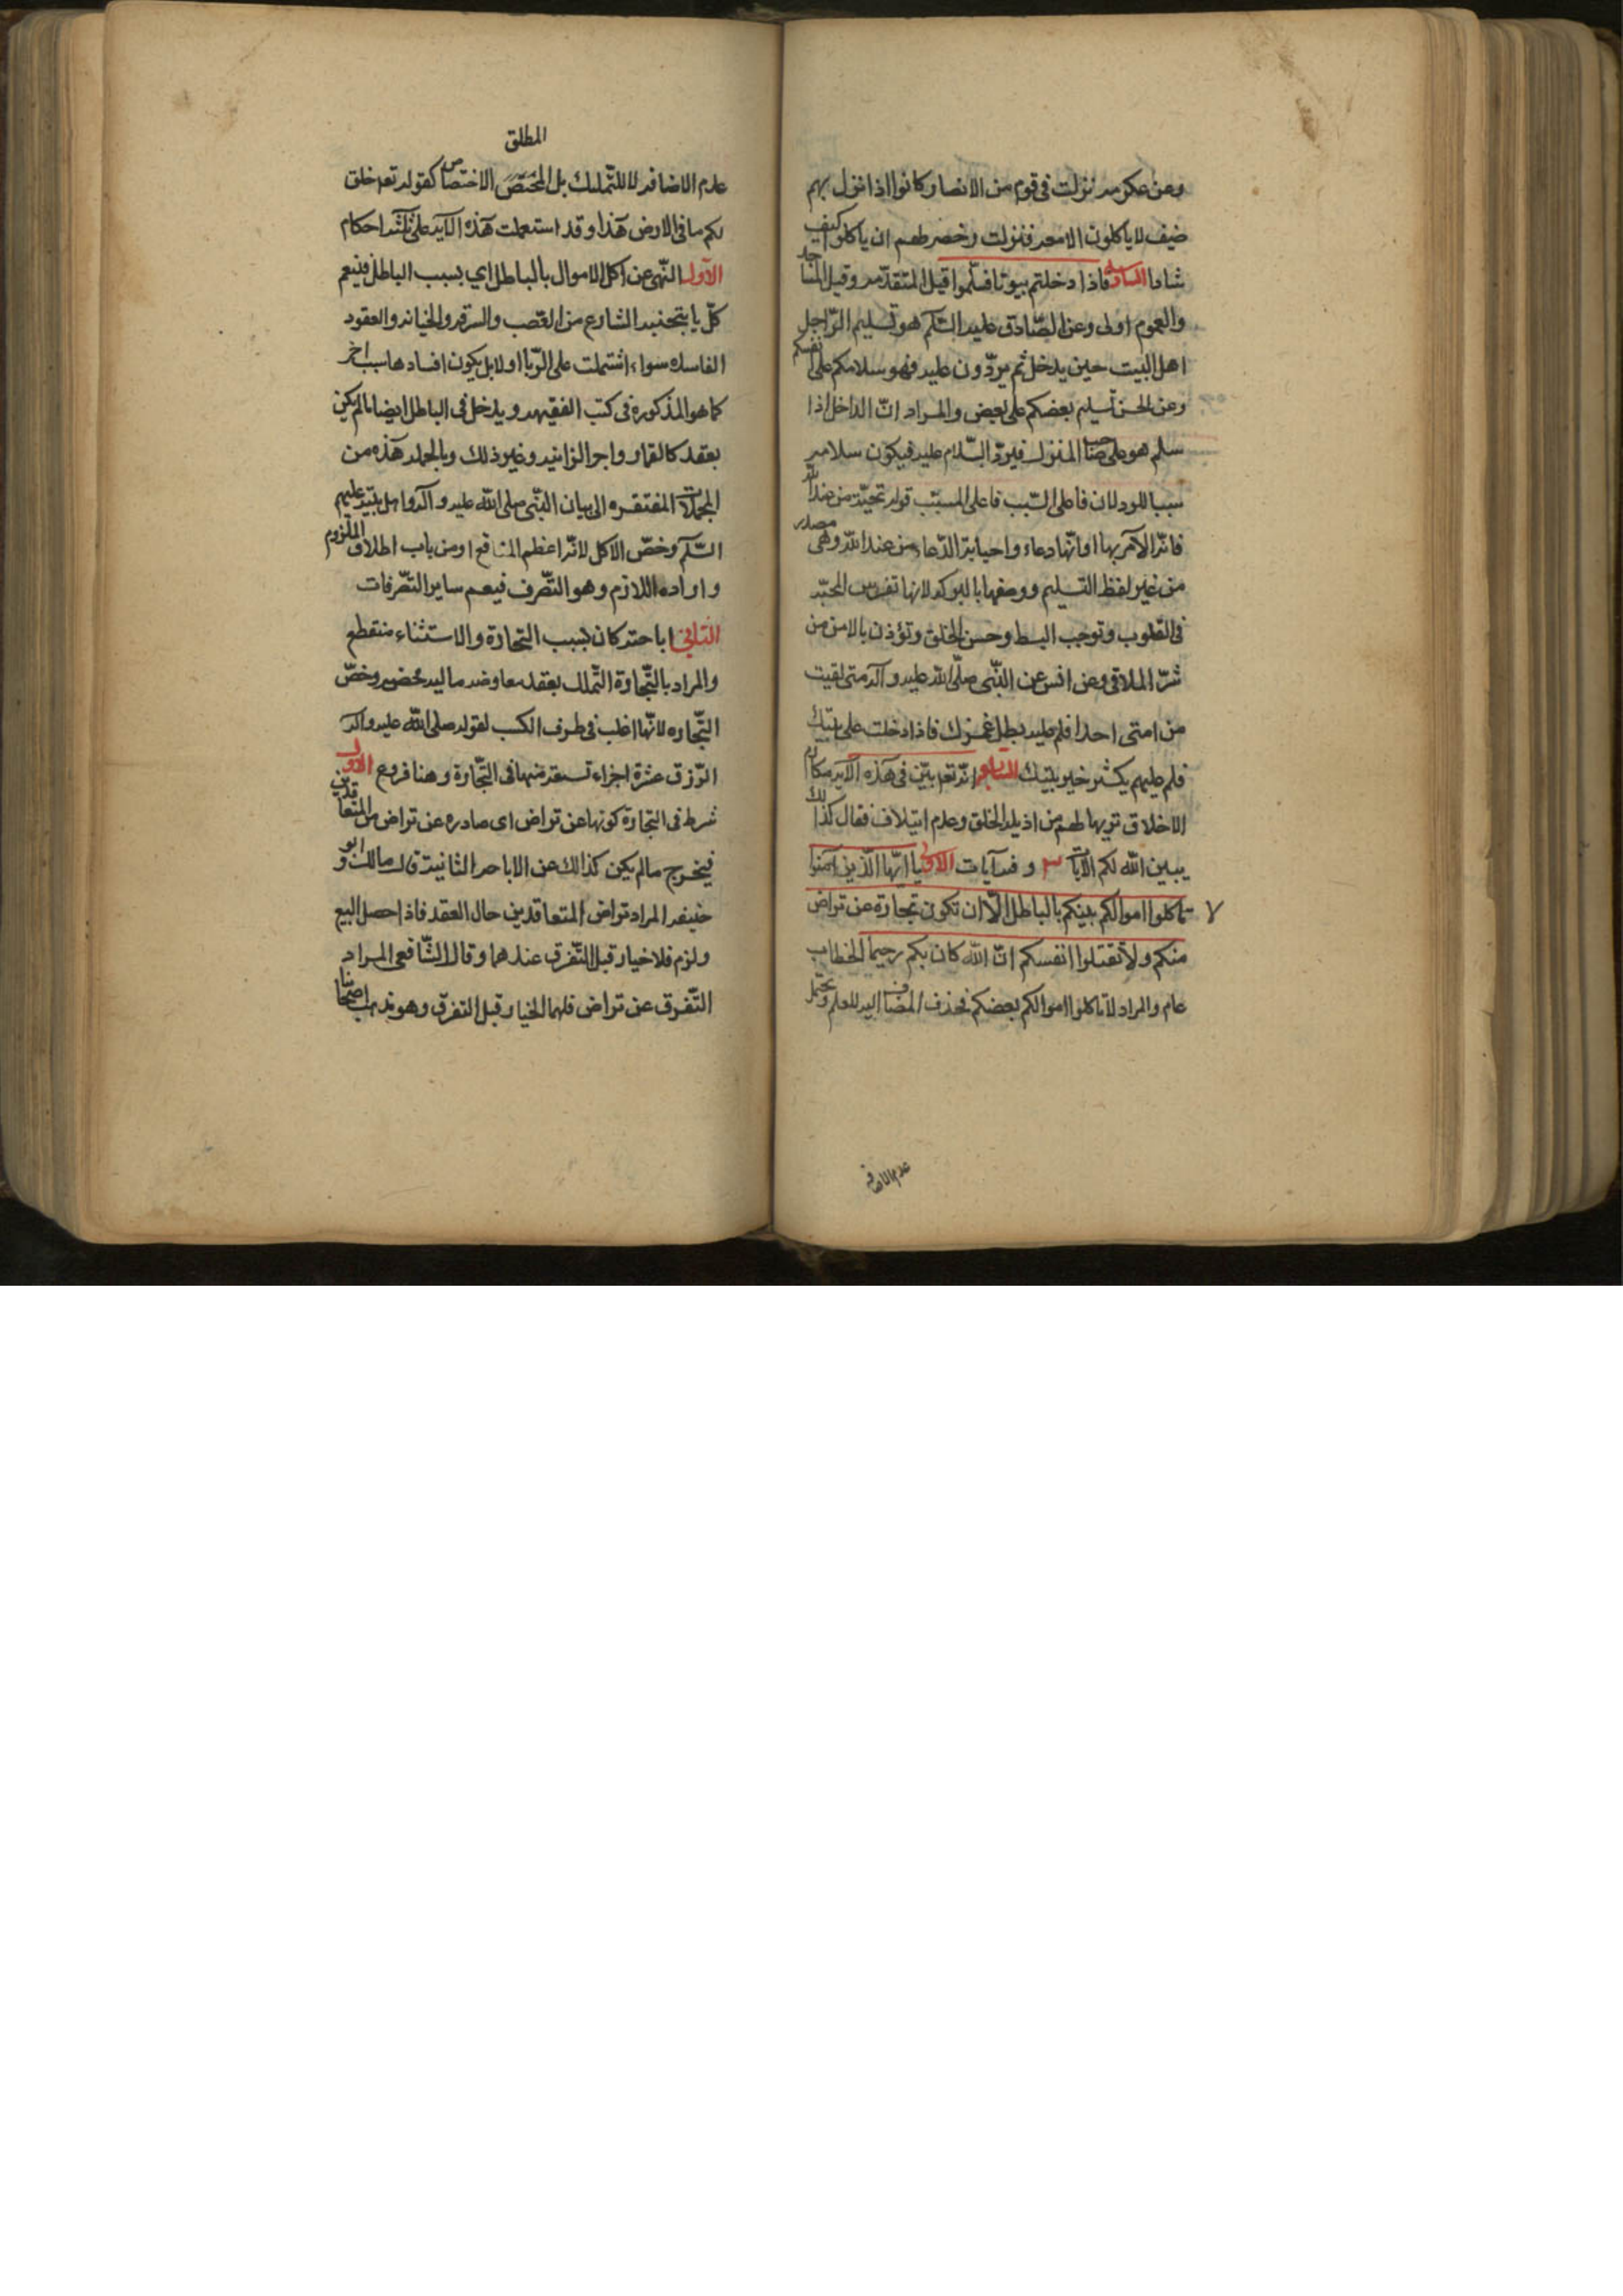 وعن عكرمه نزلت فى قوم من الانصار كانوا اذا نزل بهم
ضيف لا ياكلون الا معه فنزلت رخصه لهم ان ياكلوا كيف
شاءوا السادسه فاذا دخلتم بيوتا فسلّموا قيل المتقدّمه وقيل المساجد
والعموم اولى وعن الصّادق عليه السّلم هو تسليم الرّاجل
اهل البيت حين يدخل ثم يردّون عليه فهو سلامكم على انفسكم
وعن الحسن تسليم بعضكم على بعض والمراد انّ الداخل اذا
سلم هو على صاحب المنزل فيردّ السّلام عليه فيكون سلامه
سببا للرد لان فاعل السّبب فاعل المسبّب قوله تحيّة من عند الله
فانّه الآمر بها او انّها دعاء واجابة الدّعاء من عند الله وهى مصدر
من غير لفظ التسليم ووصفها بالبركه لانها تغرس المحبّه
فى القلوب وتوجب البسط وحسن الخلق وتؤذن بالامن من
شرّ الملاقى وعن انس عن النّبى صلّى الله عليه وآله متى لقيت
من امتى احدا فلم عليه يطل عمرك فاذا دخلت على بيتك
فلم عليهم يكثر خير بيتك السابع انّه تعه بيّن فى هذه الآيه مكارم
الاخلاق تنزيها لهم من اذيله الخلق وعدم ايتلاف فقال كذلك
يبين الله لكم الآيات وفيه آيات الاولى يا ايّها الذين آمنوا
لا تاكلوا اموالكم بينكم بالباطل الّا ان تكون تجارة عن تراض
منكم ولا تقتلوا انفسكم انّ الله كان بكم رحيما الخطاب
عام والمراد لا تاكلوا اموالكم بعضكم فحذف المضاف اليه للعلم ويحتمل
عدم الاضافه
المطلق
عدم الاضافه لا للتمليك بل المختصّ الاختصاص كقوله تعه خلق
لكم ما فى الارض هذا وقد استعملت هذه الآيه على ثلثه احكام
الاول النّهى عن اكل الاموال بالباطل اى بسبب الباطل فيعم
كلّ ما يتجنبه الشارع من الغصب والسرقه والخيانه والعقود
الفاسده سواء اشتملت على الرّبا او لا بل يكون افسادها سبب اخر
كما هو المذكوره فى كتب الفقيهه ويدخل فى الباطل ايضا ما لم يكن
بعقد كالقمار واجر الزانيه وغير ذلك وبالجمله هذه من
المجملات المفتقره الى بيان النّبى صلى الله عليه وآله واهل بيته عليهم
السّلم وخصّ الاكل لانّه اعظم المنافع او من باب اطلاق الملزوم
واراده اللازم وهو التصّرف فيعم ساير التصّرفات
الثانى اباحته كان بسبب التجارة والاستثناء منقطع
والمراد بالتّجارة التّملك بعقد معاوضه ماليه محضه وخصّ
التّجاره لانّها اغلب فى طرف الكسب لقوله صلى الله عليه واله
الرّزق عشرة اجزاء تسعه منها فى التّجارة وهنا فروع الاول
شرط فى التجارة كونها عن تراض اى صادره عن تراض من المتعاقدين
فيخرج ما لم يكن كذالك عن الاباحه الثانيه قال مالك وابو
حنيفه المراد تراض المتعاقدين حال العقد فاذا حصل البيع
ولزم فلا خيار قبل التّفرق عندهما وقال الشّافعى المراد
التّفرق عن تراض فلهما الخيار قبل التفرق وهو مذهب اصحابنا